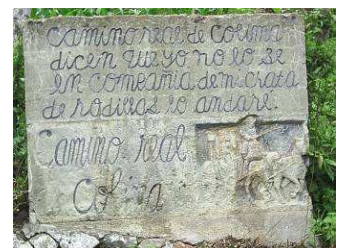 camino real de colima
dicen que yo no lo se
en compania de mi chata
de rodillas lo andare.
Camino real
Colima